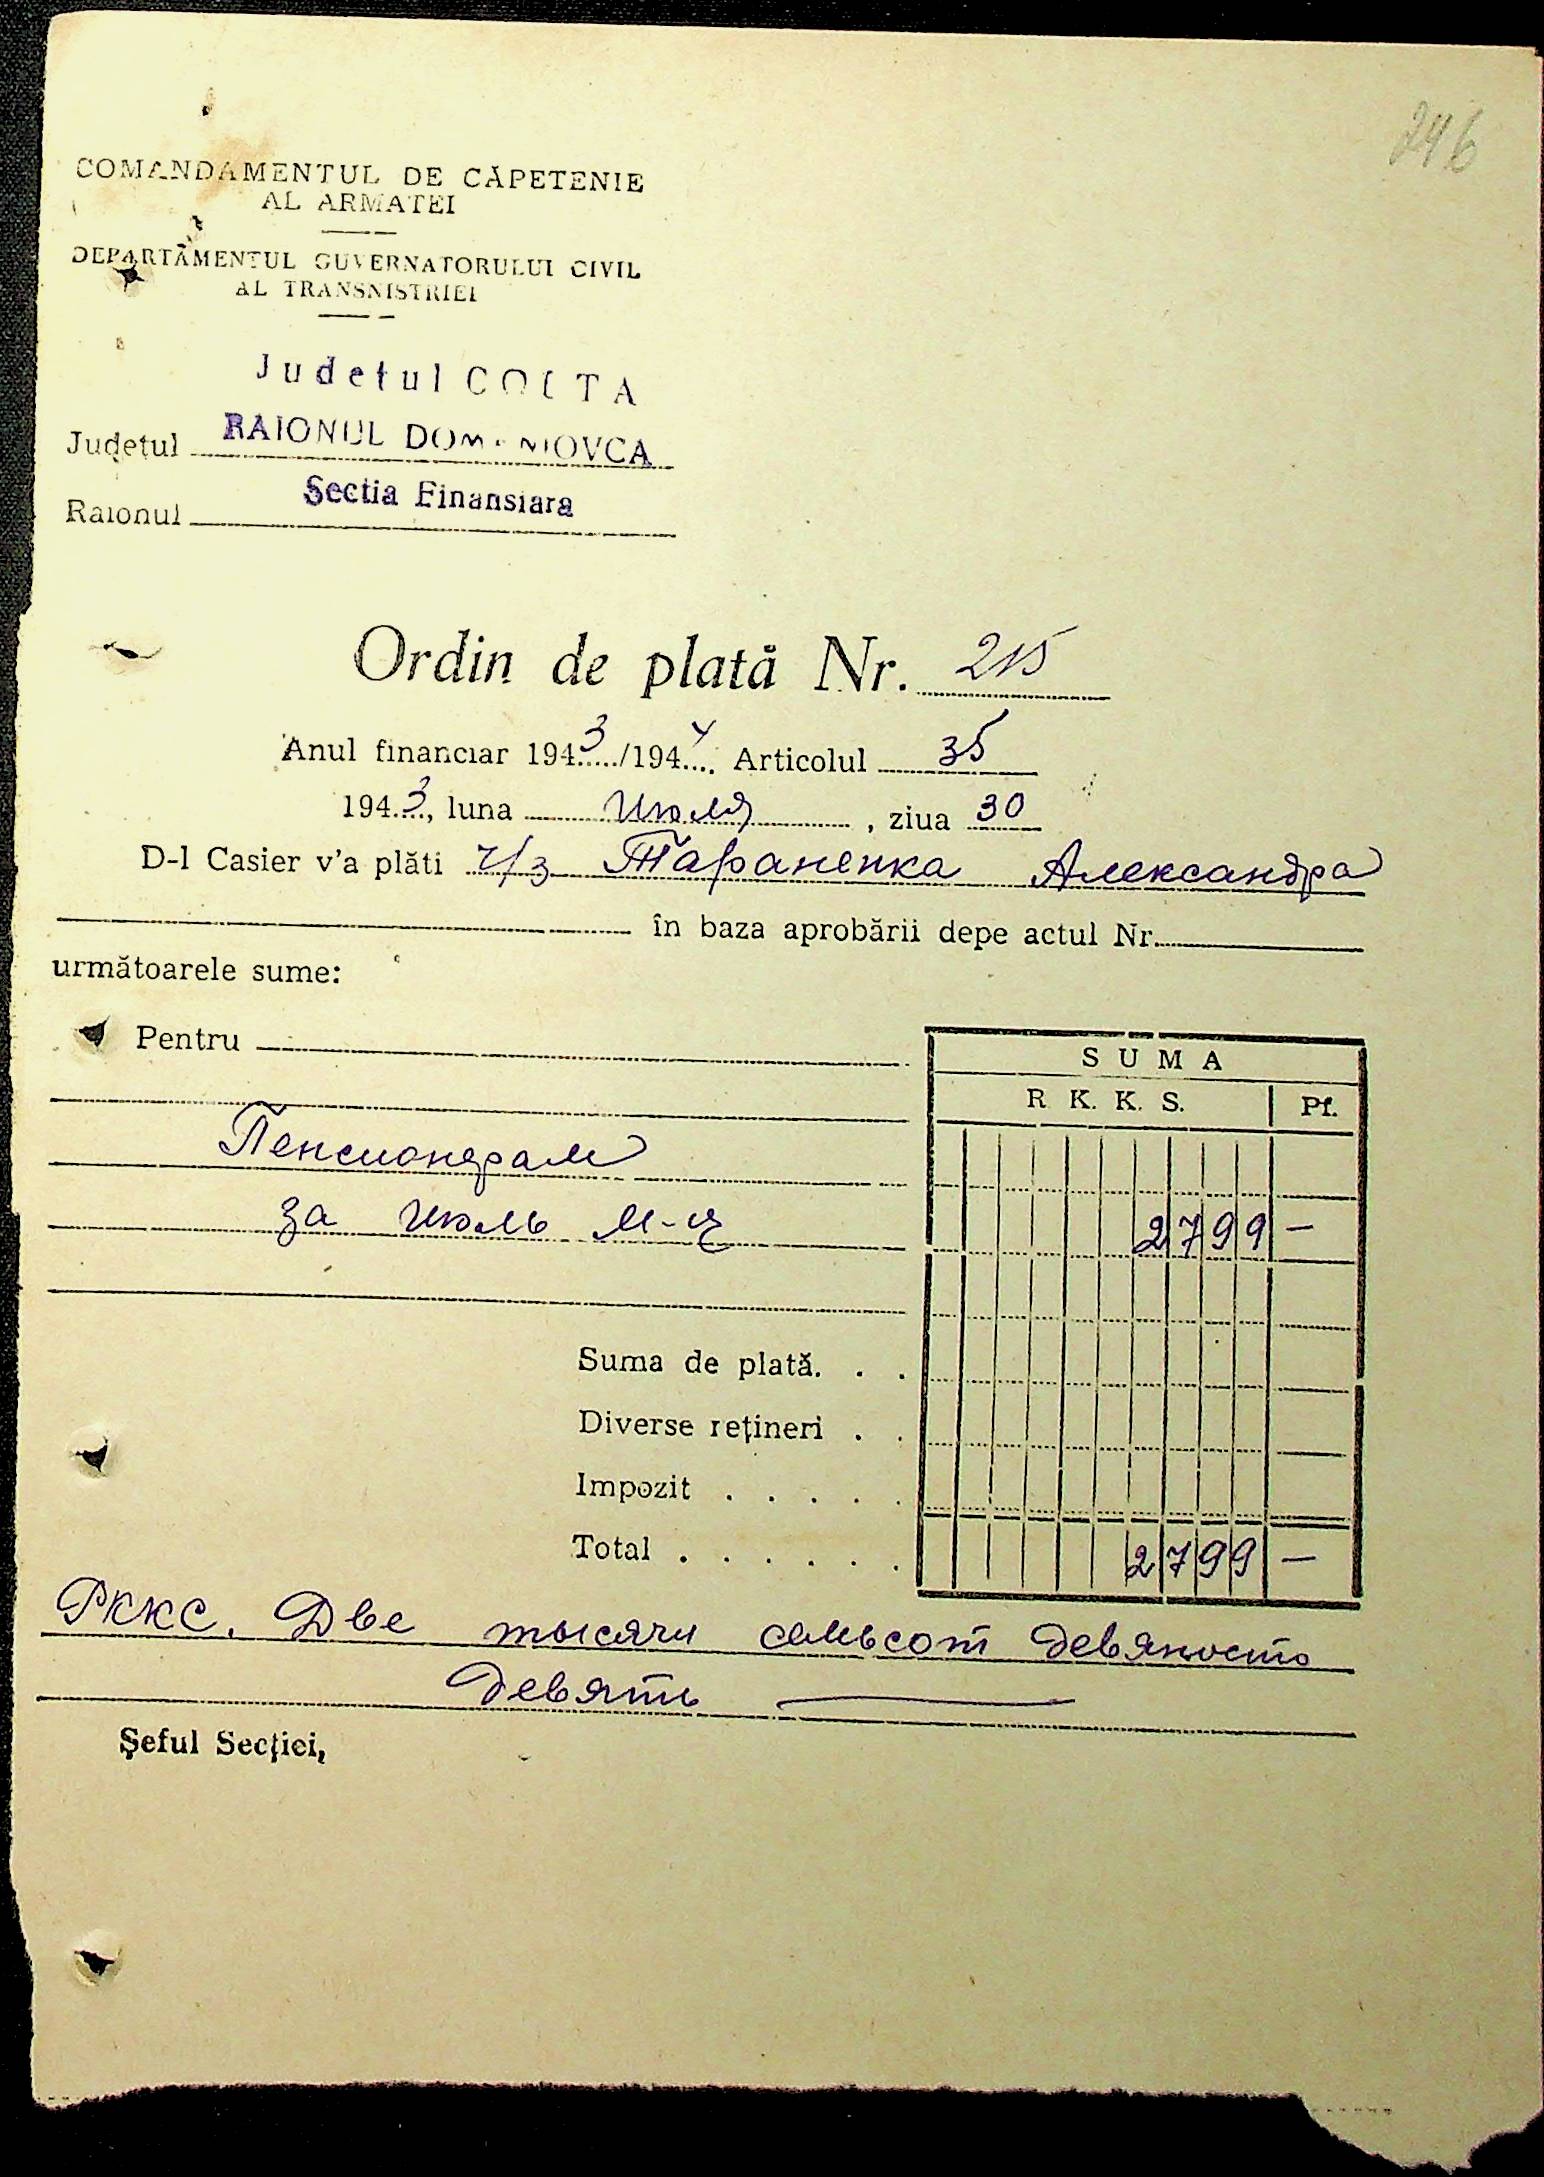 246
COMANDAMENTUL DE CĂPETENIE
AL ARMATEI
DEPARTAMENTUL GUVERNATORULUI CIVIL
AL TRANSNISTRIEI
Judetul COLTA
Județul RAIONUL DOMANIOVCA
Sectia Finansiara
Raionul
Ordin de plată Nr. 215
Anul financiar 1943/1944. Articolul 35
1943, luna июля, ziua 30
D-l Casier v'a plăti ч/з Тараненка Александра
în baza aprobării depe actul Nr.
următoarele sume:
Pentru
SUMA
R K. K. S. Pf.
Пенсионерам
за июль м-ц 2799 —
Suma de plată. . .
Diverse rețineri . .
Impozit . . . . .
Total . . . . . . 2799 —
РККС. Две тысячи семьсот девяносто
девять
Șeful Secției,